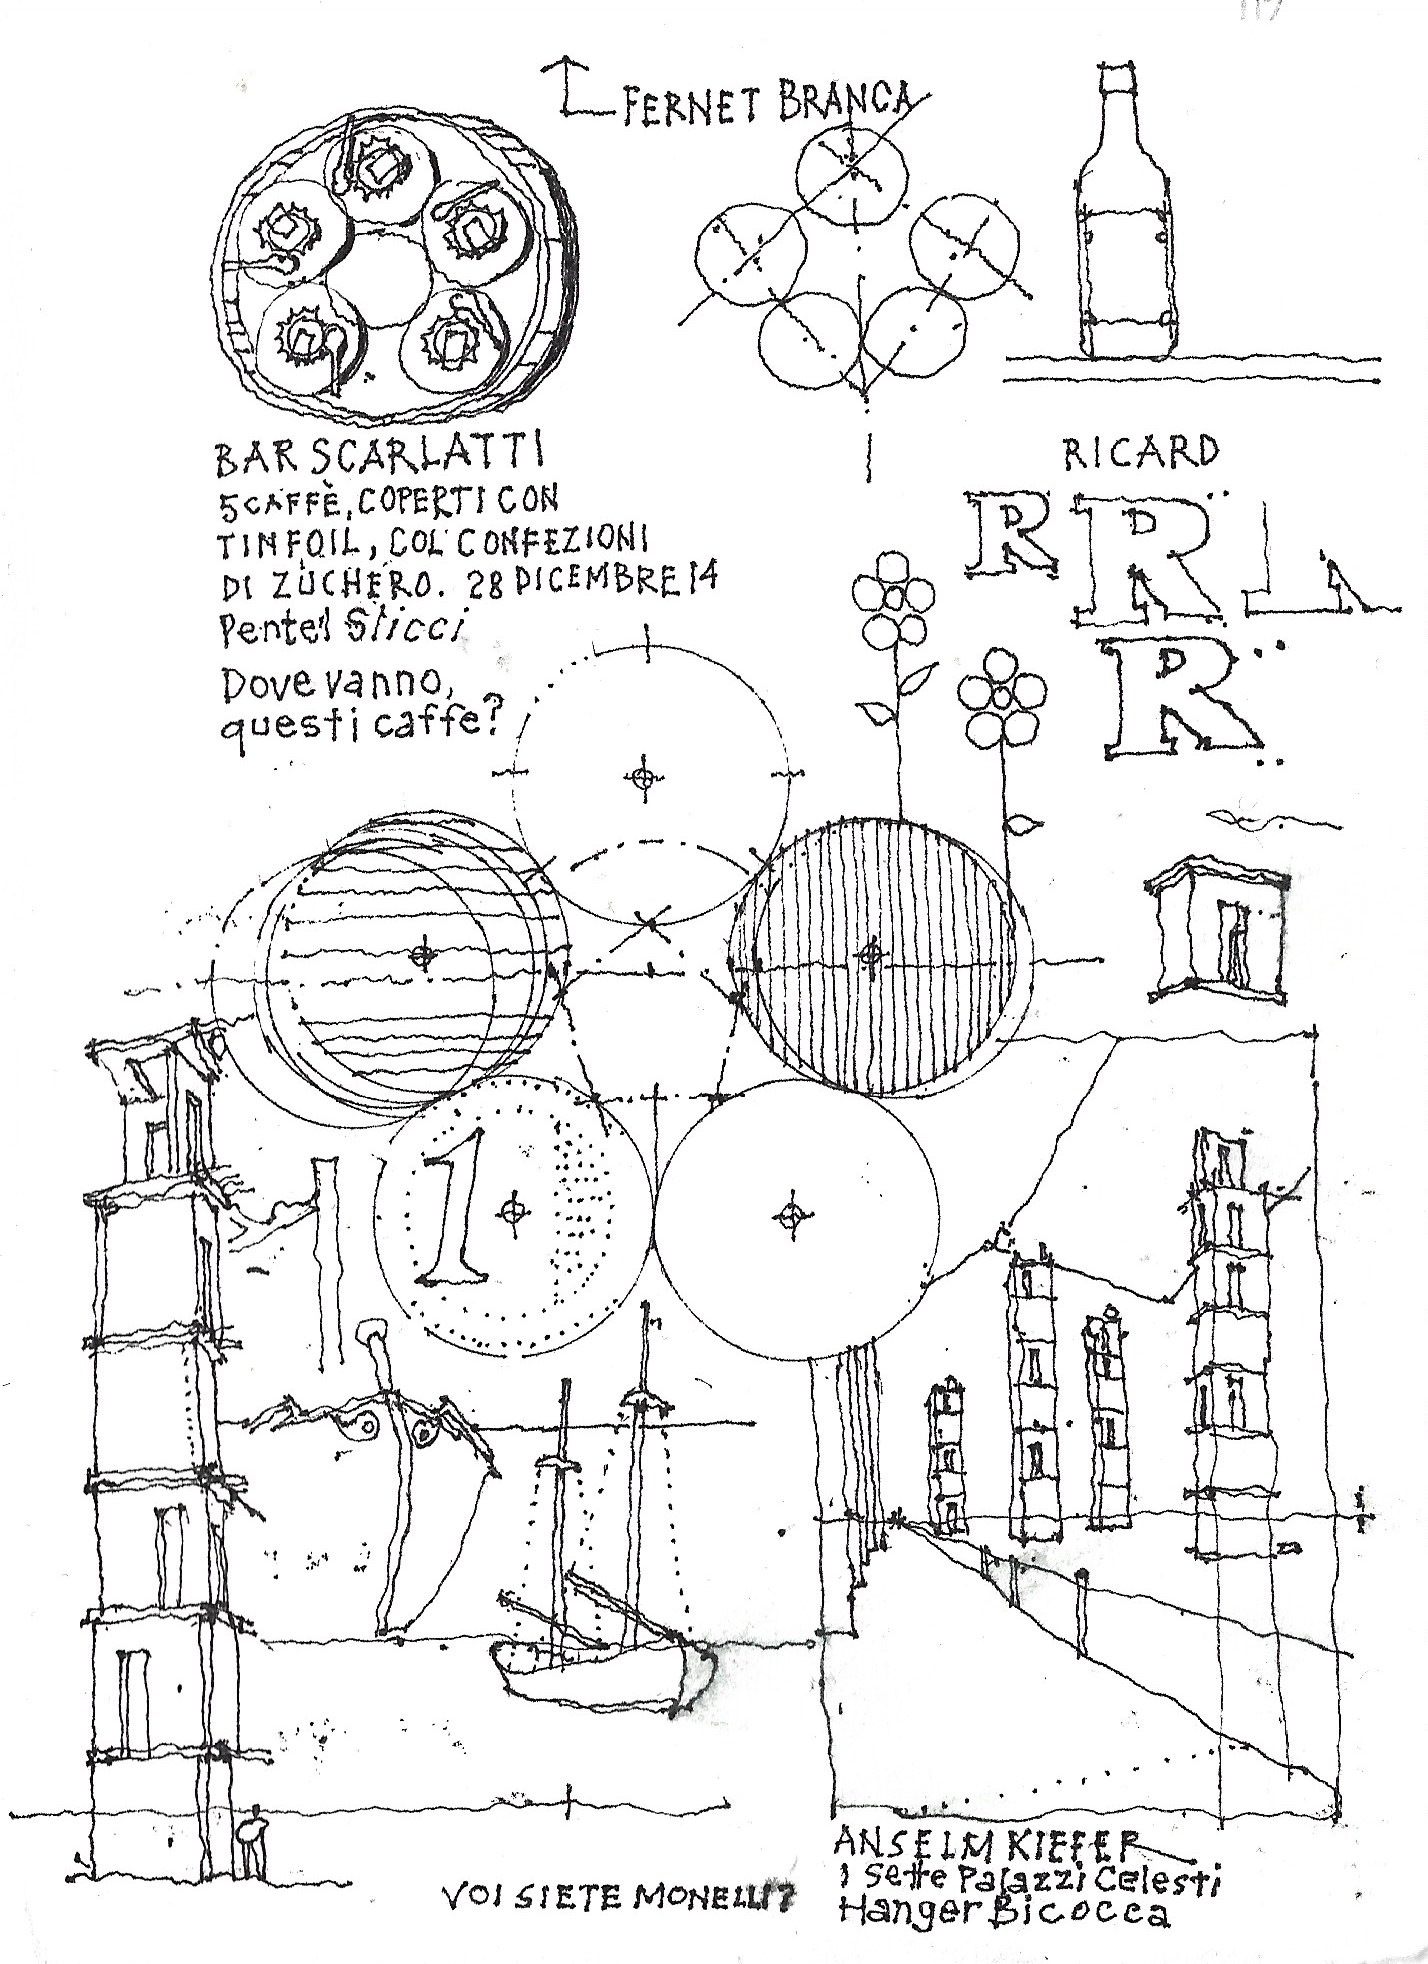 FERNET BRANCA
BAR SCARLATTI
5 CAFFÈ, COPERTI CON
TINFOIL, COL CONFEZIONI
DI ZUCHERO. 28 DICEMBRE 14
Pentel Slicci
Dove vanno,
questi caffe?
RICARD
R R
R
1
ANSELM KIEFER
I Sette Palazzi Celesti
Hanger Bicocca
VOI SIETE MONELLI?